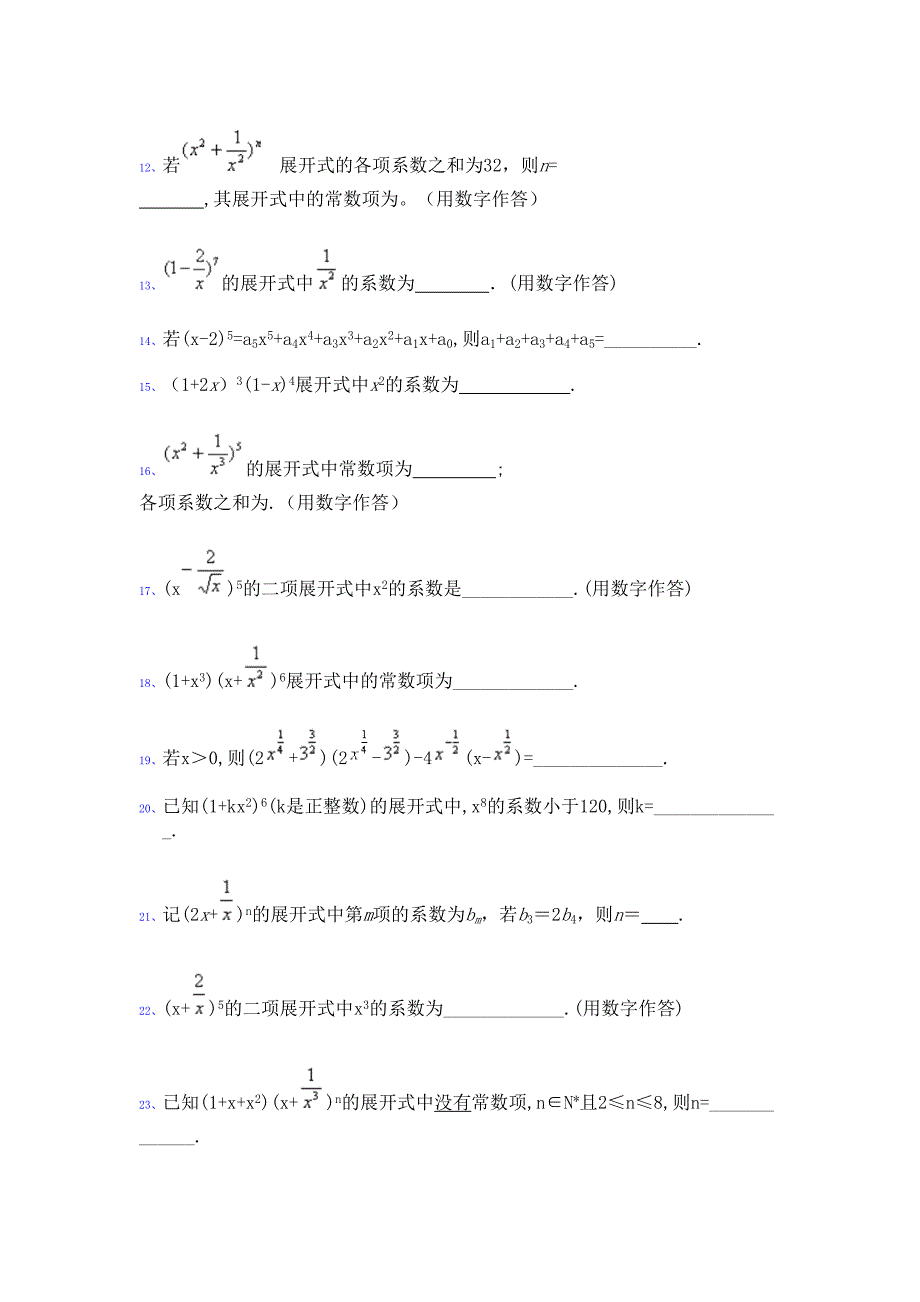 12、若(x²+1/x²)ⁿ 展开式的各项系数之和为32，则n=
_______,其展开式中的常数项为。（用数字作答）
13、(1-2/x)⁷的展开式中1/x²的系数为________．(用数字作答)
14、若(x-2)⁵=a₅x⁵+a₄x⁴+a₃x³+a₂x²+a₁x+a₀,则a₁+a₂+a₃+a₄+a₅=__________.
15、（1+2x）³(1-x)⁴展开式中x²的系数为____________.
16、(x²+1/x³)⁵的展开式中常数项为_________;
各项系数之和为.（用数字作答）
17、(x-2/√x)⁵的二项展开式中x²的系数是____________.(用数字作答)
18、(1+x³)(x+1/x²)⁶展开式中的常数项为_____________.
19、若x＞0,则(2x^(1/4)+3^(3/2))(2x^(1/4)-3^(3/2))-4x^(-1/2)(x-x^(1/2))=______________.
20、已知(1+kx²)⁶(k是正整数)的展开式中,x⁸的系数小于120,则k=_____________
_.
21、记(2x+1/x)ⁿ的展开式中第m项的系数为bₘ，若b₃＝2b₄，则n＝____.
22、(x+2/x)⁵的二项展开式中x³的系数为_____________.(用数字作答)
23、已知(1+x+x²)(x+1/x³)ⁿ的展开式中没有常数项,n∈N*且2≤n≤8,则n=_______
______.